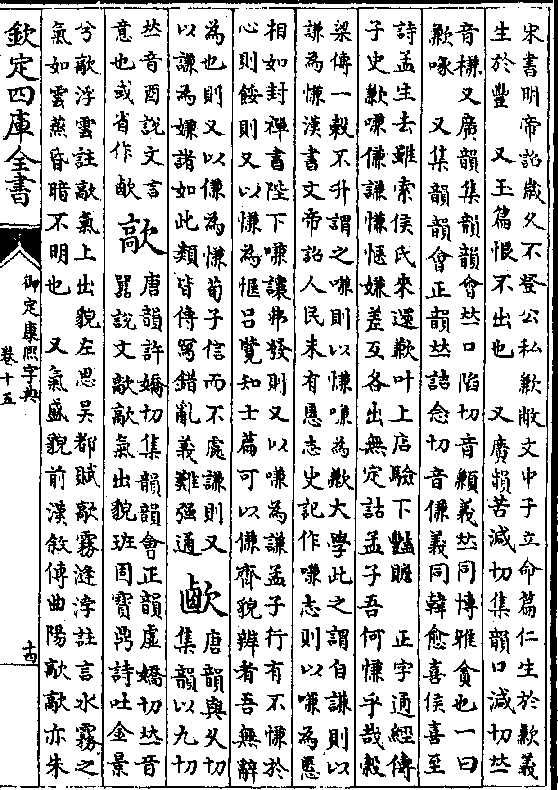 宋書明帝詔歲久不登公私歉敝文中子立命篇仁生於歉義
生於豐　又玉篇恨不出也　又廣韻苦減切集韻口減切𠀤
音㯠又廣韻集韻韻會𠀤口陷切音顑義𠀤同博雅貪也一曰
歉喙　又集韻韻會正韻𠀤詰念切音傔義同韓愈喜侯喜至
詩孟生去雖索侯氏來還歉叶上店驗下豔贍　正字通經傳
子史歉嗛傔謙慊愜嫌差互各出無定詁孟子吾何慊乎哉穀
梁傳一穀不升謂之嗛則以慊嗛為歉大學此之謂自謙則以
謙為慊漢書文帝詔人民未有㥦志史記作嗛志則以嗛為㥦
相如封禪書陛下嗛讓弗發則又以嗛為謙孟子行有不慊於
心則餒則又以慊為愜吕覽知士篇可以傔齊貌辨者吾無辭
為也則又以傔為慊荀子信而不處謙則又
以謙為嫌諸如此類皆傳寫錯亂義難强通
㰶
唐韻與久切
集韻以九切
𠀤音酉說文言
意也或省作㰶
歊
唐韻許嬌切集韻韻會正韻虛嬌切𠀤音
嚻說文歊歊氣出貌班固寶鼎詩吐金景
兮歊浮雲註歊氣上出貌左思吳都賦歊霧漨浡註言水霧之
氣如雲蒸昏暗不明也　又氣盛貌前漢敘傳曲陽歊歊亦朱
欽定四庫全書
御定康熙字典
卷十五
十四